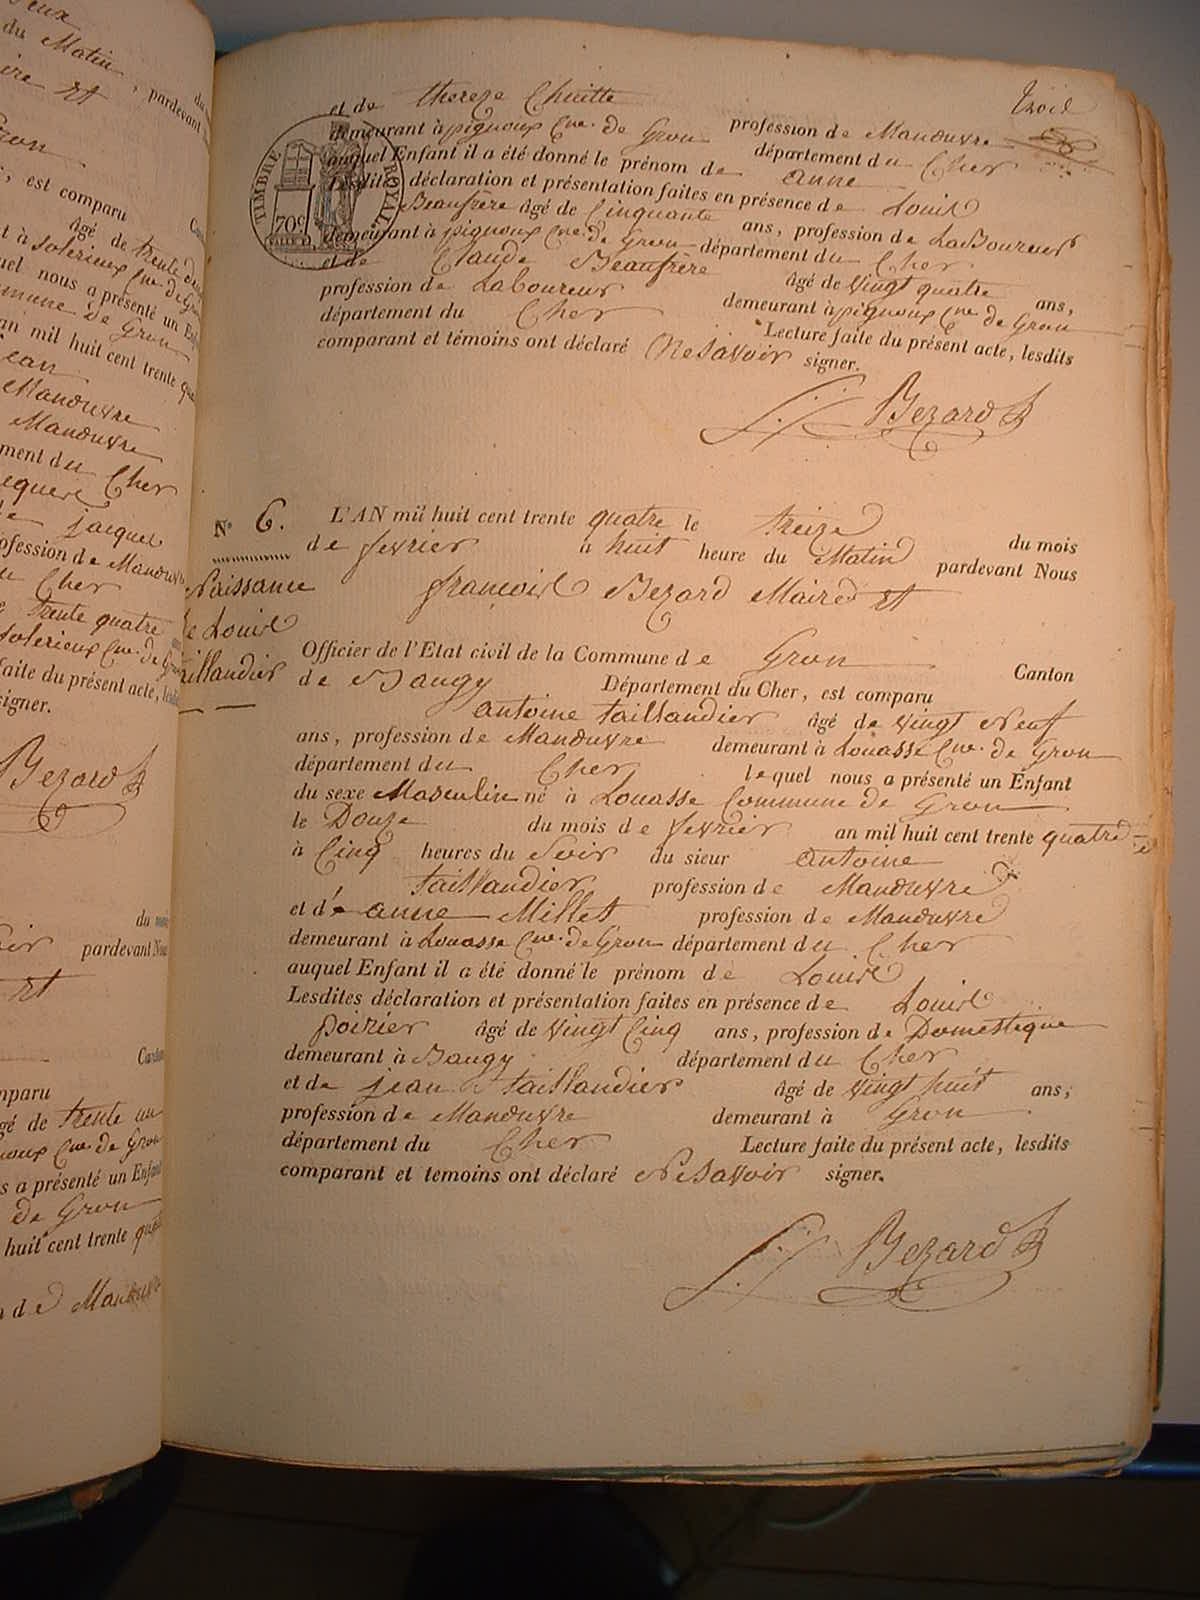 eux
du Matin, pardevant
ire et
Gron
, est comparu
âgé de trente
à Solerieux Cne de Gron
quel nous a présenté un Enfant
commune de Gron
an mil huit cent trente
jean
Manœuvre
Manœuvre
ment du Cher
jacques
profession de Manœuvre
Cher
trente quatre
Solerieux Cne de Gron
faite du présent acte,
signer.
Bezard
du mois
pardevant Nous
et
Canton
mparu
gé de trente un
Cne de Gron
s a présenté un Enfant
de Gron
huit cent trente
de Manœuvre
trois
et de thereze Chuitte
profession de Manœuvre
demeurant à pignoux Cne de Gron département du Cher
auquel Enfant il a été donné le prénom de anne
Lesdites déclaration et présentation faites en présence de Louis
Beaufrère âgé de Cinquante ans, profession de LaBoureur
demeurant à pignoux Cne de Gron département du Cher
et de Claude Beaufrère âgé de vingt quatre ans,
profession de Laboureur demeurant à pignoux Cne de Gron
département du Cher Lecture faite du présent acte, lesdits
comparant et témoins ont déclaré Ne Savoir signer.
TIMBRE ROYAL
70c
Bezard
N° 6.
Naissance
de Louis
taillandier
L'AN mil huit cent trente quatre le treize du mois
de fevrier à huit heure du Matin pardevant Nous
françois Bezard Maire et
Officier de l'Etat civil de la Commune de Gron Canton
de Baugy Département du Cher, est comparu
antoine taillandier âgé de vingt Neuf
ans, profession de Manœuvre demeurant à Louasse Cne de Gron
département du Cher lequel nous a présenté un Enfant
du sexe Masculin né à Louasse Commune de Gron
le Douze du mois de fevrier an mil huit cent trente quatre
à Cinq heures du Soir du sieur antoine
taillandier profession de Manœuvre
et d' anne Millet profession de Manœuvre
demeurant à Louasse Cne de Gron département du Cher
auquel Enfant il a été donné le prénom de Louis
Lesdites déclaration et présentation faites en présence de Louis
poirier âgé de vingt Cinq ans, profession de Domestique
demeurant à Baugy département du Cher
et de jean taillandier âgé de vingt huit ans,
profession de Manœuvre demeurant à Gron
département du Cher Lecture faite du présent acte, lesdits
comparant et temoins ont déclaré Ne Savoir signer.
Bezard